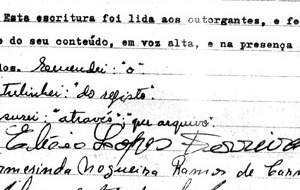 Esta escritura foi lida aos outorgantes, e fe
e do seu conteúdo, em voz alta, e na presença
os. Emendei: "o"
tulinhei: "do registo".
surei: "através"; que arquivo.
Lopes Ferreira
ermerinda Nogueira Ramos de Carr